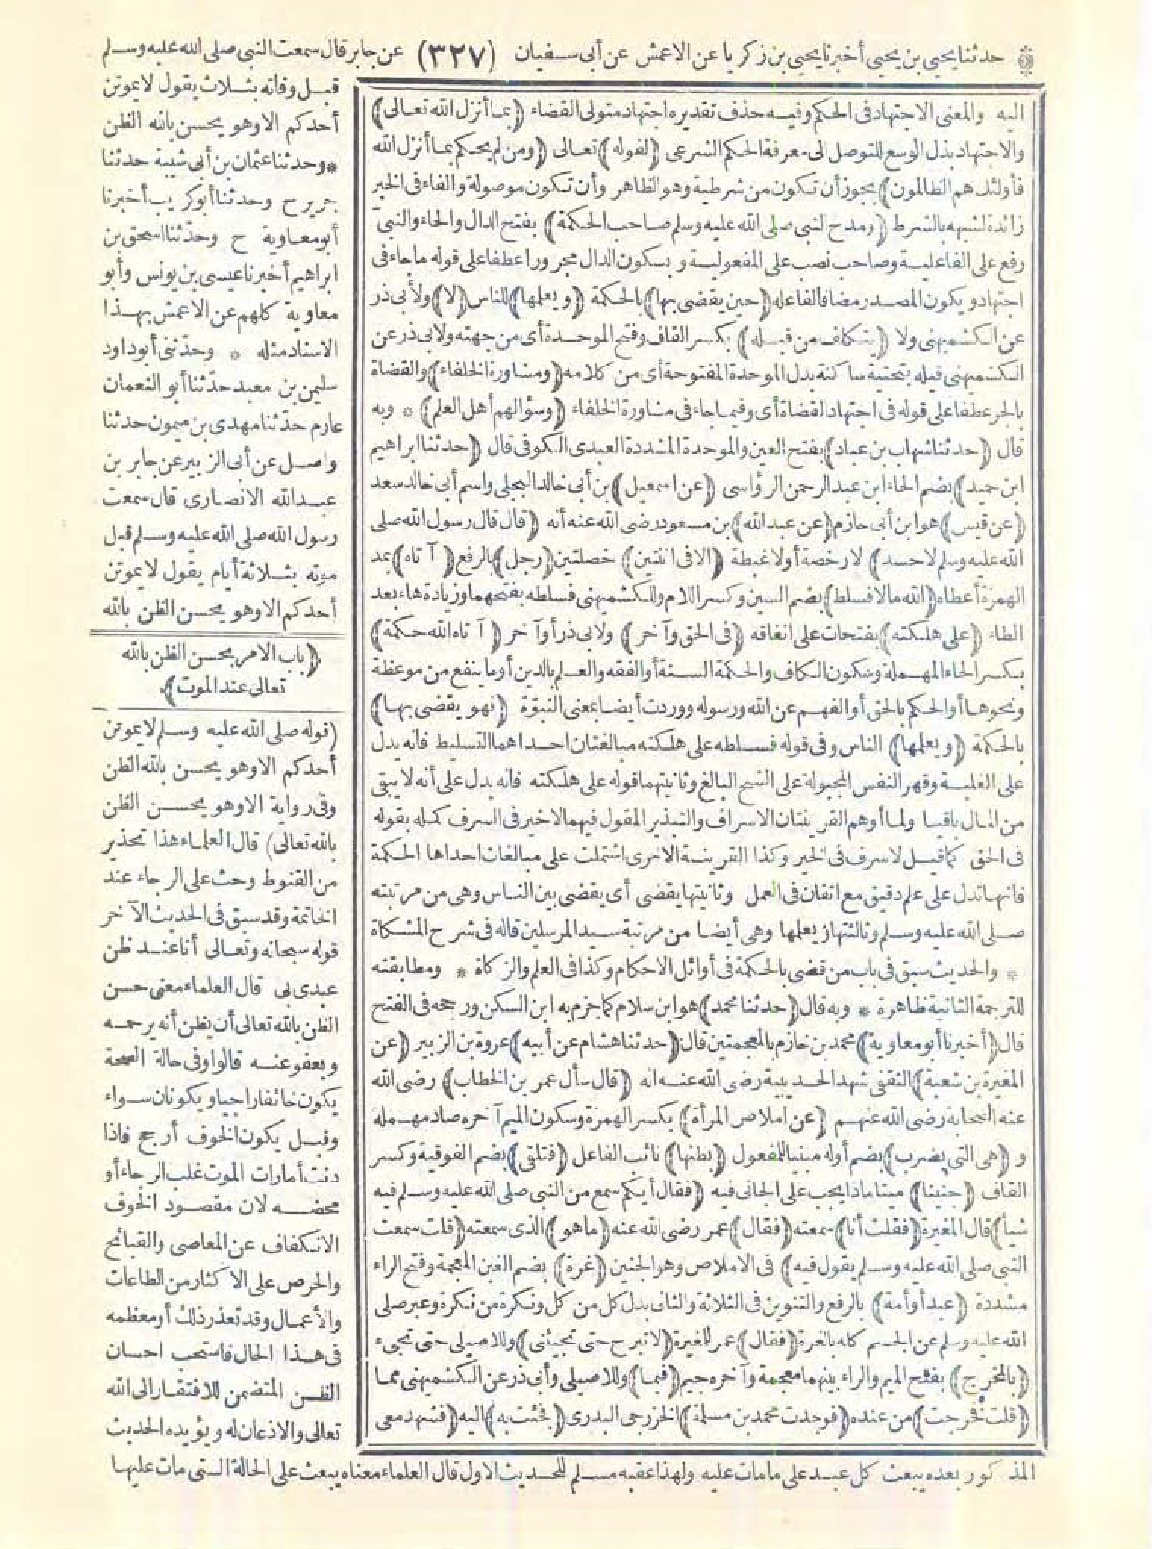 * حدثنا يحيى بن يحيى أخبرنا يحيى بن زكريا عن الاعمش عن أبى سفيان (٣٢٧) عن جابر قال سمعت النبى صلى الله عليه وسلم
قبل وفاته بثلاث يقول لا يموتن
أحدكم الا وهو يحسن بالله الظن
* وحدثنا عثمان بن أبى شيبة حدثنا
جرير ح وحدثنا أبو كريب أخبرنا
أبو معاوية ح وحدثنا اسحق بن
ابراهيم أخبرنا عيسى بن يونس وأبو
معاوية كلهم عن الاعمش بهذا
الاسناد مثله * وحدثنى أبو داود
سليمن بن معبد حدثنا أبو النعمان
عارم حدثنا مهدى بن ميمون حدثنا
واصل عن أبى الزبير عن جابر بن
عبد الله الانصارى قال سمعت
رسول الله صلى الله عليه وسلم قبل
موته بثلاثة أيام يقول لا يموتن
أحدكم الا وهو يحسن الظن بالله
(باب الامر بحسن الظن بالله
تعالى عند الموت)
(قوله صلى الله عليه وسلم لا يموتن
أحدكم الا وهو يحسن بالله الظن
وفى رواية الا وهو يحسن الظن
بالله تعالى) قال العلماء هذا تحذير
من القنوط وحث على الرجاء عند
الخاتمة وقد سبق فى الحديث الآخر
قوله سبحانه وتعالى أنا عند ظن
عبدى بى قال العلماء معنى حسن
الظن بالله تعالى أن يظن أنه يرحمه
ويعفو عنه قالوا وفى حالة الصحة
يكون خائفا راجيا ويكونان سواء
وقيل يكون الخوف أرجح فاذا
دنت أمارات الموت غلب الرجاء أو
محضه لان مقصود الخوف
الانكفاف عن المعاصى والقبائح
والحرص على الاكثار من الطاعات
والأعمال وقد تعذر ذلك أو معظمه
فى هذا الحال فاستحب احسان
الظن المتضمن للافتقار الى الله
تعالى والاذعان له ويؤيده الحديث
اليه والمعنى الاجتهاد فى الحكم وفيه حذف تقديره اجتهاد متولى القضاء (بما أنزل الله تعالى)
والاجتهاد بذل الوسع للتوصل الى معرفة الحكم الشرعى (لقوله) تعالى (ومن لم يحكم بما أنزل الله
فأولئك هم الظالمون) يجوز أن تكون من شرطية وهو الظاهر وأن تكون موصولة والفاء فى الخبر
زائدة لشبهه بالشرط (ومدح النبى صلى الله عليه وسلم صاحب الحكمة) بفتح الدال والحاء والنبى
رفع على الفاعلية وصاحب نصب على المفعولية وبسكون الدال مجرورا عطفا على قوله ما جاء فى
اجتهاد ويكون المصدر مضافا لفاعله (حين يقضى بها) بالحكمة (ويعلمها) للناس (لا) ولأبى ذر
عن الكشميهنى ولا (يتكلف من قبله) بكسر القاف وفتح الموحدة أى من جهته ولابى ذر عن
الكشميهنى قيله بتحتية ساكنة بدل الموحدة المفتوحة أى من كلامه (ومشاورة الخلفاء) والقضاة
بالجر عطفا على قوله فى اجتهاد القضاة أى وفيما جاء فى مشاورة الخلفاء (وسؤالهم أهل العلم) * وبه
قال (حدثنا شهاب بن عباد) بفتح العين والموحدة المشددة العبدى الكوفى قال (حدثنا ابراهيم
ابن حميد) بضم الحاء ابن عبد الرحمن الرؤاسى (عن اسمعيل) بن أبى خالد البجلى واسم أبى خالد سعد
(عن قيس) هو ابن أبى حازم (عن عبد الله) بن مسعود رضى الله عنه أنه (قال قال رسول الله صلى
الله عليه وسلم لا حسد) لا رخصة أو لا غبطة (الا فى اثنتين) خصلتين (رجل) بالرفع (آتاه) بمد
الهمزة أعطاه (الله مالا فسلط) بضم السين وكسر اللام وللكشميهنى فسلطه بفتحهما وزيادة هاء بعد
الطاء (على هلكته) بفتحات على انفاقه (فى الحق وآخر) ولابى ذر أو آخر (آتاه الله حكمة)
بكسر الحاء المهملة وسكون الكاف والحكمة السنة أو الفقه والعلم بالدين أو ما ينفع من موعظة
ونحوها أو الحكم بالحق أو الفهم عن الله ورسوله ووردت أيضا بمعنى النبوة (فهو يقضى بها)
بالحكمة (ويعلمها) الناس وفى قوله فسلطه على هلكته مبالغتان احداهما التسليط فانه يدل
على الغلبة وقهر النفس المجبولة على الشح البالغ وثانيتهما قوله على هلكته فانه يدل على أنه لا يبقى
من المال باقيا ولما أوهم القرينتان الاسراف والتبذير المقول فيهما لا خير فى السرف كمله بقوله
فى الحق كما قيل لا سرف فى الخير وكذا القرينة الاخرى اشتملت على مبالغات احداها الحكمة
فانها تدل على علم دقيق مع اتقان فى العمل وثانيتها يقضى أى يقضى بين الناس وهى من مرتبته
صلى الله عليه وسلم وثالثتها يعلمها وهى أيضا من مرتبة سيد المرسلين قاله فى شرح المشكاة
* والحديث سبق فى باب من قضى بالحكمة فى أوائل الاحكام وكذا فى العلم والزكاة * ومطابقته
للترجمة الثانية ظاهرة * وبه قال (حدثنا محمد) هو ابن سلام كما جزم به ابن السكن ورجحه فى الفتح
قال (أخبرنا أبو معاوية) محمد بن خازم بالمعجمتين قال (حدثنا هشام عن أبيه) عروة بن الزبير (عن
المغيرة بن شعبة) الثقفى شهد الحديبية رضى الله عنه انه (قال سأل عمر بن الخطاب) رضى الله
عنه الصحابة رضى الله عنهم (عن املاص المرأة) بكسر الهمزة وسكون الميم آخره صاد مهملة
و (هى التى يضرب) بضم أوله مبنيا للمفعول (بطنها) نائب الفاعل (فتلقى) بضم الفوقية وكسر
القاف (جنينا) ميتا ماذا يجب على الجانى فيه (فقال أيكم سمع من النبى صلى الله عليه وسلم فيه
شيأ) قال المغيرة (فقلت أنا) سمعته (فقال) عمر رضى الله عنه (ما هو) الذى سمعته (قلت سمعت
النبى صلى الله عليه وسلم يقول فيه) فى الاملاص وهو الجنين (غرة) بضم الغين المعجمة وفتح الراء
مشددة (عبد أو أمة) بالرفع والتنوين فى الثلاثة والثانى بدل كل من كل ونكرة من نكرة وعبر صلى
الله عليه وسلم عن الجسم كله بالغرة (فقال) عمر للمغيرة (لا تبرح حتى تجيئنى) وللاصيلى حتى تجىء
(بالمخرج) بفتح الميم والراء بينهما معجمة وآخره جيم (فيما) وللاصيلى وأبى ذر عن الكشميهنى مما
(قلت فخرجت) من عنده (فوجدت محمد بن مسلمة) الخزرجى البدرى (فجئت به) اليه (فشهد معى
المذكور بعده يبعث كل عبد على ما مات عليه ولهذا عقبه مسلم للحديث الاول قال العلماء معناه يبعث على الحالة التى مات عليها